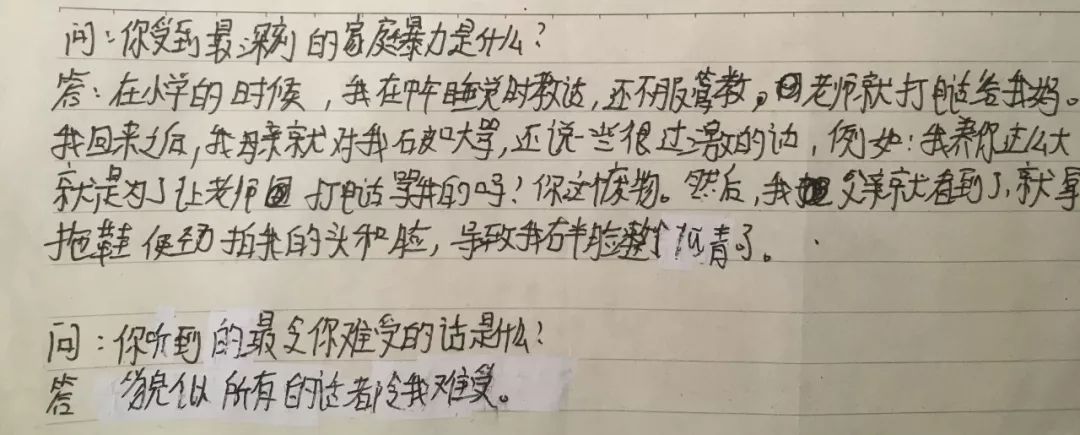 问：你受到最深刻的家庭暴力是什么？
答：在小学的时候，我在中午睡觉时教话，还不服管教，老师就打电话给我妈。
我回来之后，我母亲就对我破口大骂，还说一些很过激的话，例如：我养你这么大
就是为了让老师打电话骂我的吗？你这个废物。然后，我父亲就看到了，就拿
拖鞋使劲拍我的头和脸，导致我右半脸整个淤青了。
问：你听到的最令你难受的话是什么？
答 貌似所有的话都令我难受。